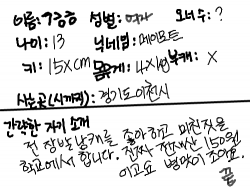 이름: ㄱ승승 성별: 여자 오너수: ?
나이: 13 닉네임: 메이포트
키: 15Xcm 몸무게: 4X kg 본캐: X
사는곳(시까지): 경기도이천시
간략한 자기 소개
전 장발남캐를 좋아하고 미친짓을
학교에서 합니다. 전 재산은 150원
이고요 병약이 조아요.
끝